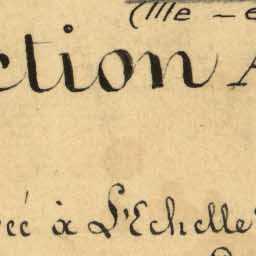 (IIIe - e
ction A
vée à L'Echelle